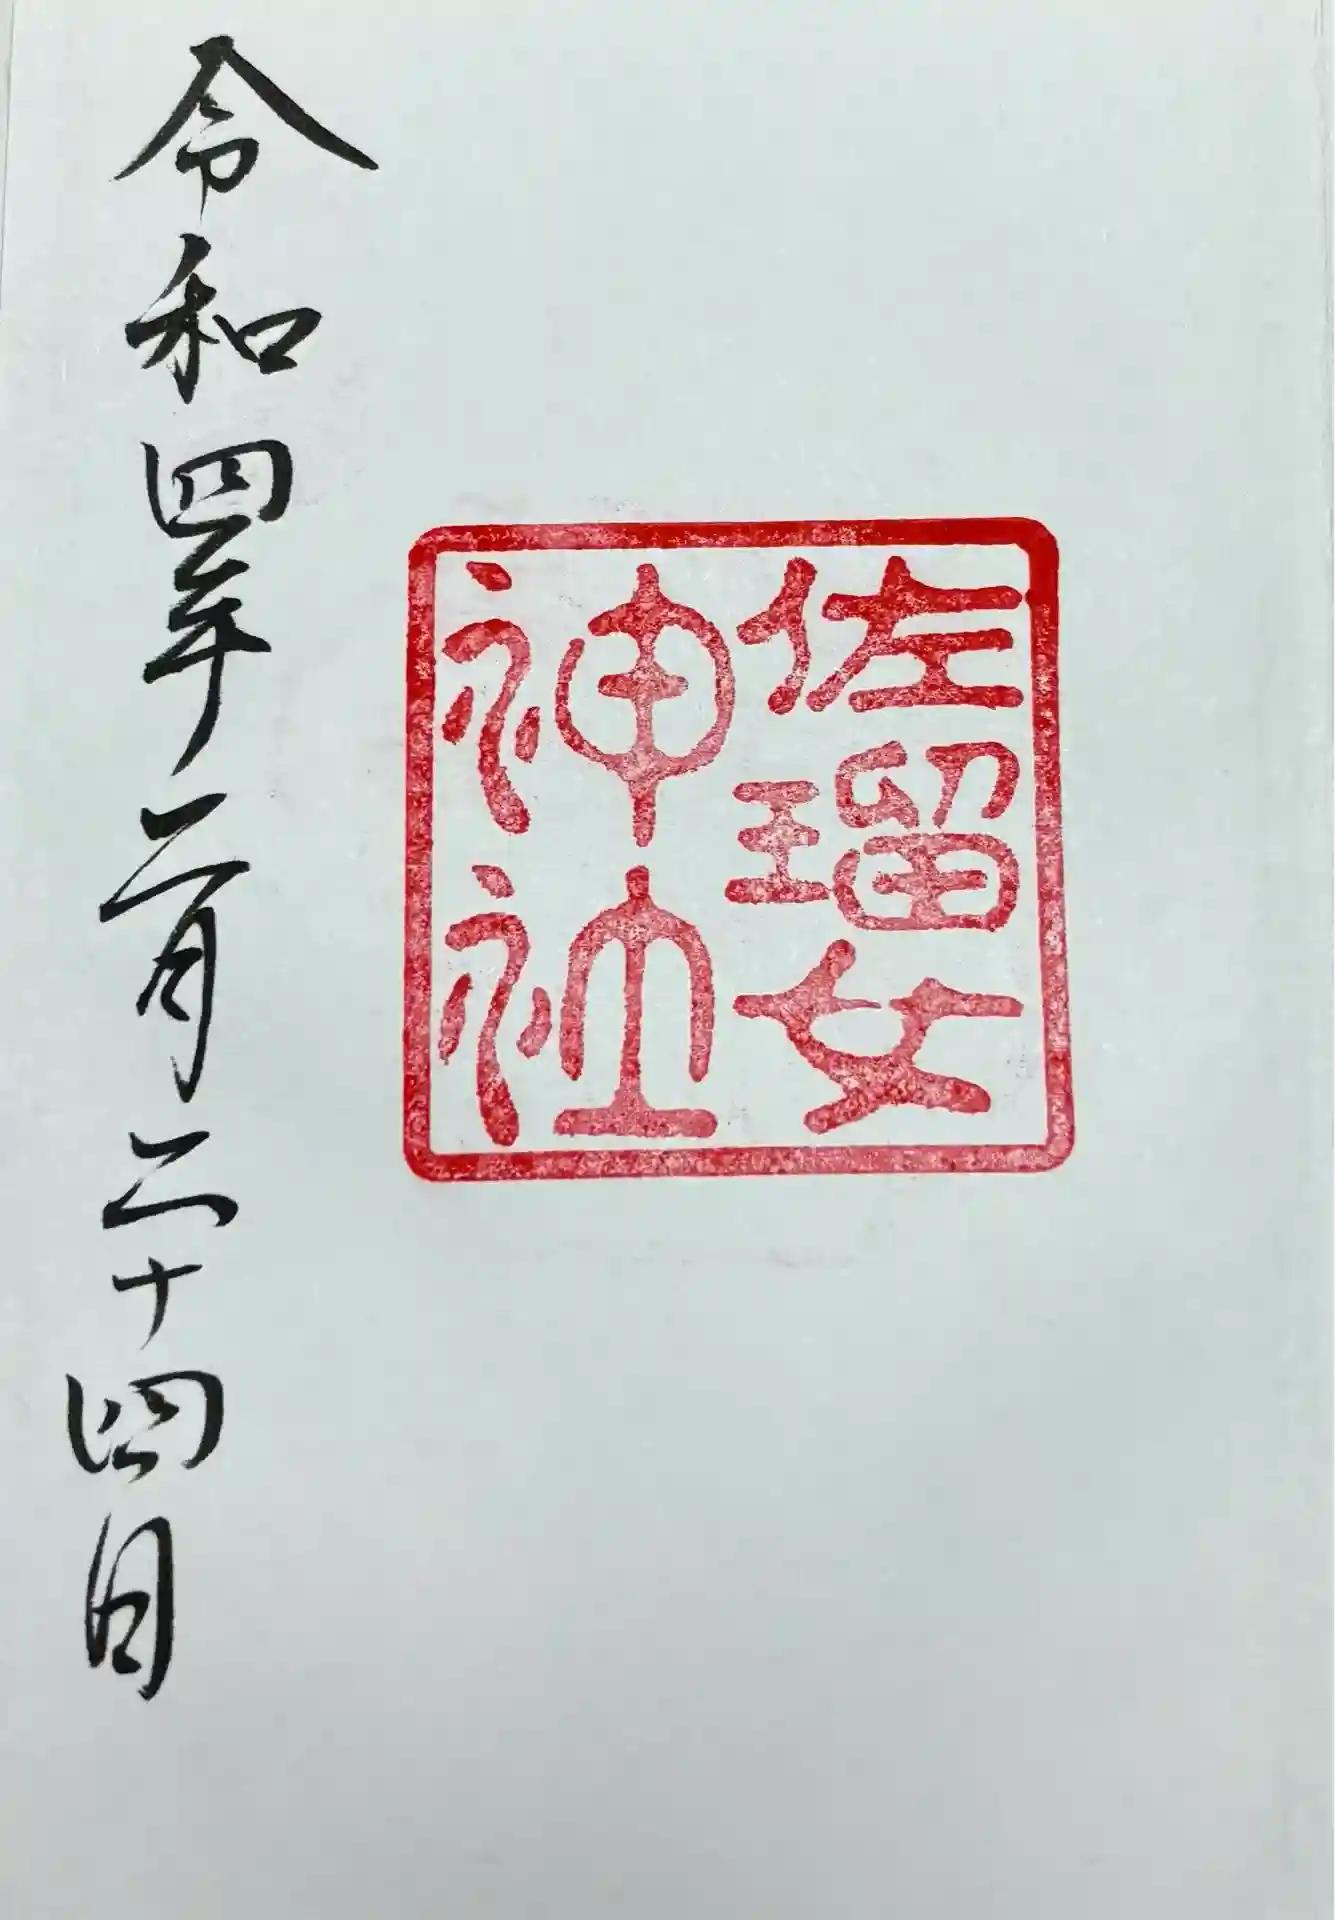 佐瑠女
神社
令和四年二月二十四日